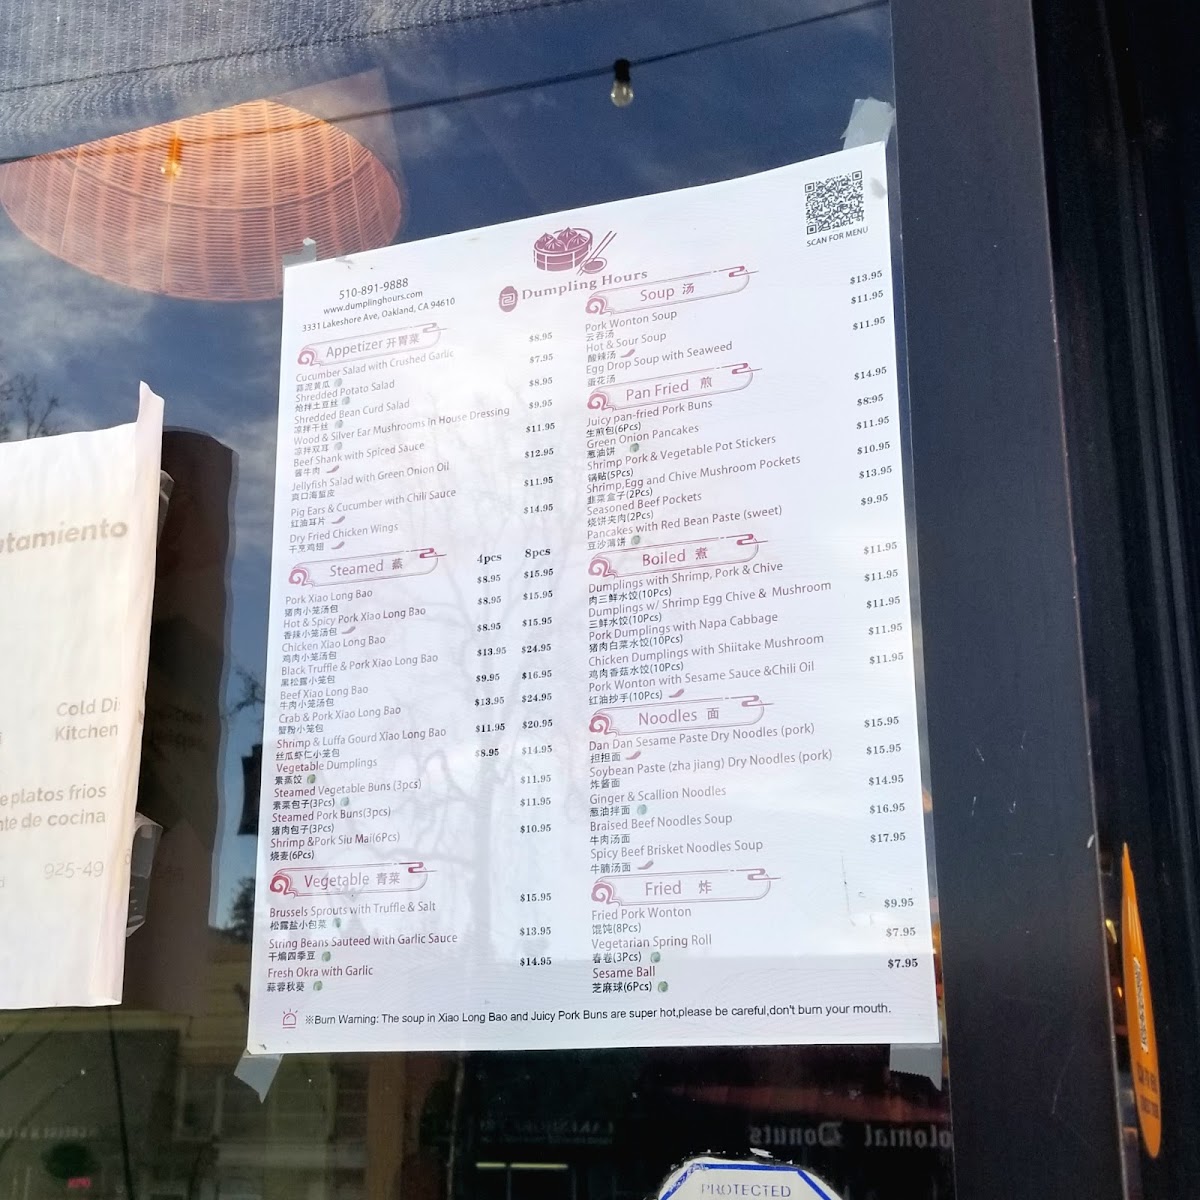 510-891-9888
www.dumplinghours.com
3331 Lakeshore Ave, Oakland, CA 94610
Dumpling Hours
SCAN FOR MENU
Appetizer 开胃菜
Cucumber Salad with Crushed Garlic $8.95
蒜泥黄瓜
Shredded Potato Salad $7.95
炝拌土豆丝
Shredded Bean Curd Salad $8.95
凉拌干丝
Wood & Silver Ear Mushrooms in House Dressing $9.95
凉拌双耳
Beef Shank with Spiced Sauce $11.95
酱牛肉
Jellyfish Salad with Green Onion Oil $12.95
爽口海蜇皮
Pig Ears & Cucumber with Chili Sauce $11.95
红油耳片
Dry Fried Chicken Wings $14.95
干烹鸡翅
Steamed 蒸 4pcs 8pcs
Pork Xiao Long Bao $8.95 $15.95
猪肉小笼汤包
Hot & Spicy Pork Xiao Long Bao $8.95 $15.95
香辣小笼汤包
Chicken Xiao Long Bao $8.95 $15.95
鸡肉小笼汤包
Black Truffle & Pork Xiao Long Bao $13.95 $24.95
黑松露小笼包
Beef Xiao Long Bao $9.95 $16.95
牛肉小笼汤包
Crab & Pork Xiao Long Bao $13.95 $24.95
蟹粉小笼包
Shrimp & Luffa Gourd Xiao Long Bao $11.95 $20.95
丝瓜虾仁小笼包
Vegetable Dumplings $8.95 $14.95
素蒸饺
Steamed Vegetable Buns (3pcs) $11.95
素菜包子(3Pcs)
Steamed Pork Buns(3pcs) $11.95
猪肉包子(3Pcs)
Shrimp &Pork Siu Mai(6Pcs) $10.95
烧麦(6Pcs)
Vegetable 青菜
Brussels Sprouts with Truffle & Salt $15.95
松露盐小包菜
String Beans Sauteed with Garlic Sauce $13.95
干煸四季豆
Fresh Okra with Garlic $14.95
蒜蓉秋葵
Soup 汤
Pork Wonton Soup $13.95
云吞汤
Hot & Sour Soup $11.95
酸辣汤
Egg Drop Soup with Seaweed $11.95
蛋花汤
Pan Fried 煎
Juicy pan-fried Pork Buns $14.95
生煎包(6Pcs)
Green Onion Pancakes $8.95
葱油饼
Shrimp Pork & Vegetable Pot Stickers $11.95
锅贴(5Pcs)
Shrimp,Egg and Chive Mushroom Pockets $10.95
韭菜盒子(2Pcs)
Seasoned Beef Pockets $13.95
烧饼夹肉(2Pcs)
Pancakes with Red Bean Paste (sweet) $9.95
豆沙薄饼
Boiled 煮
Dumplings with Shrimp, Pork & Chive $11.95
肉三鲜水饺(10Pcs)
Dumplings w/ Shrimp Egg Chive & Mushroom $11.95
三鲜水饺(10Pcs)
Pork Dumplings with Napa Cabbage $11.95
猪肉白菜水饺(10Pcs)
Chicken Dumplings with Shiitake Mushroom $11.95
鸡肉香菇水饺(10Pcs)
Pork Wonton with Sesame Sauce &Chili Oil $11.95
红油抄手(10Pcs)
Noodles 面
Dan Dan Sesame Paste Dry Noodles (pork) $15.95
担担面
Soybean Paste (zha jiang) Dry Noodles (pork) $15.95
炸酱面
Ginger & Scallion Noodles $14.95
葱油拌面
Braised Beef Noodles Soup $16.95
牛肉汤面
Spicy Beef Brisket Noodles Soup $17.95
牛腩汤面
Fried 炸
Fried Pork Wonton $9.95
馄饨(8Pcs)
Vegetarian Spring Roll $7.95
春卷(3Pcs)
Sesame Ball $7.95
芝麻球(6Pcs)
※Burn Warning: The soup in Xiao Long Bao and Juicy Pork Buns are super hot,please be careful,don't burn your mouth.
utamiento
Cold Di
Kitchen
e platos frios
nte de cocina
925-49
olonial Donuts
PROTECTED